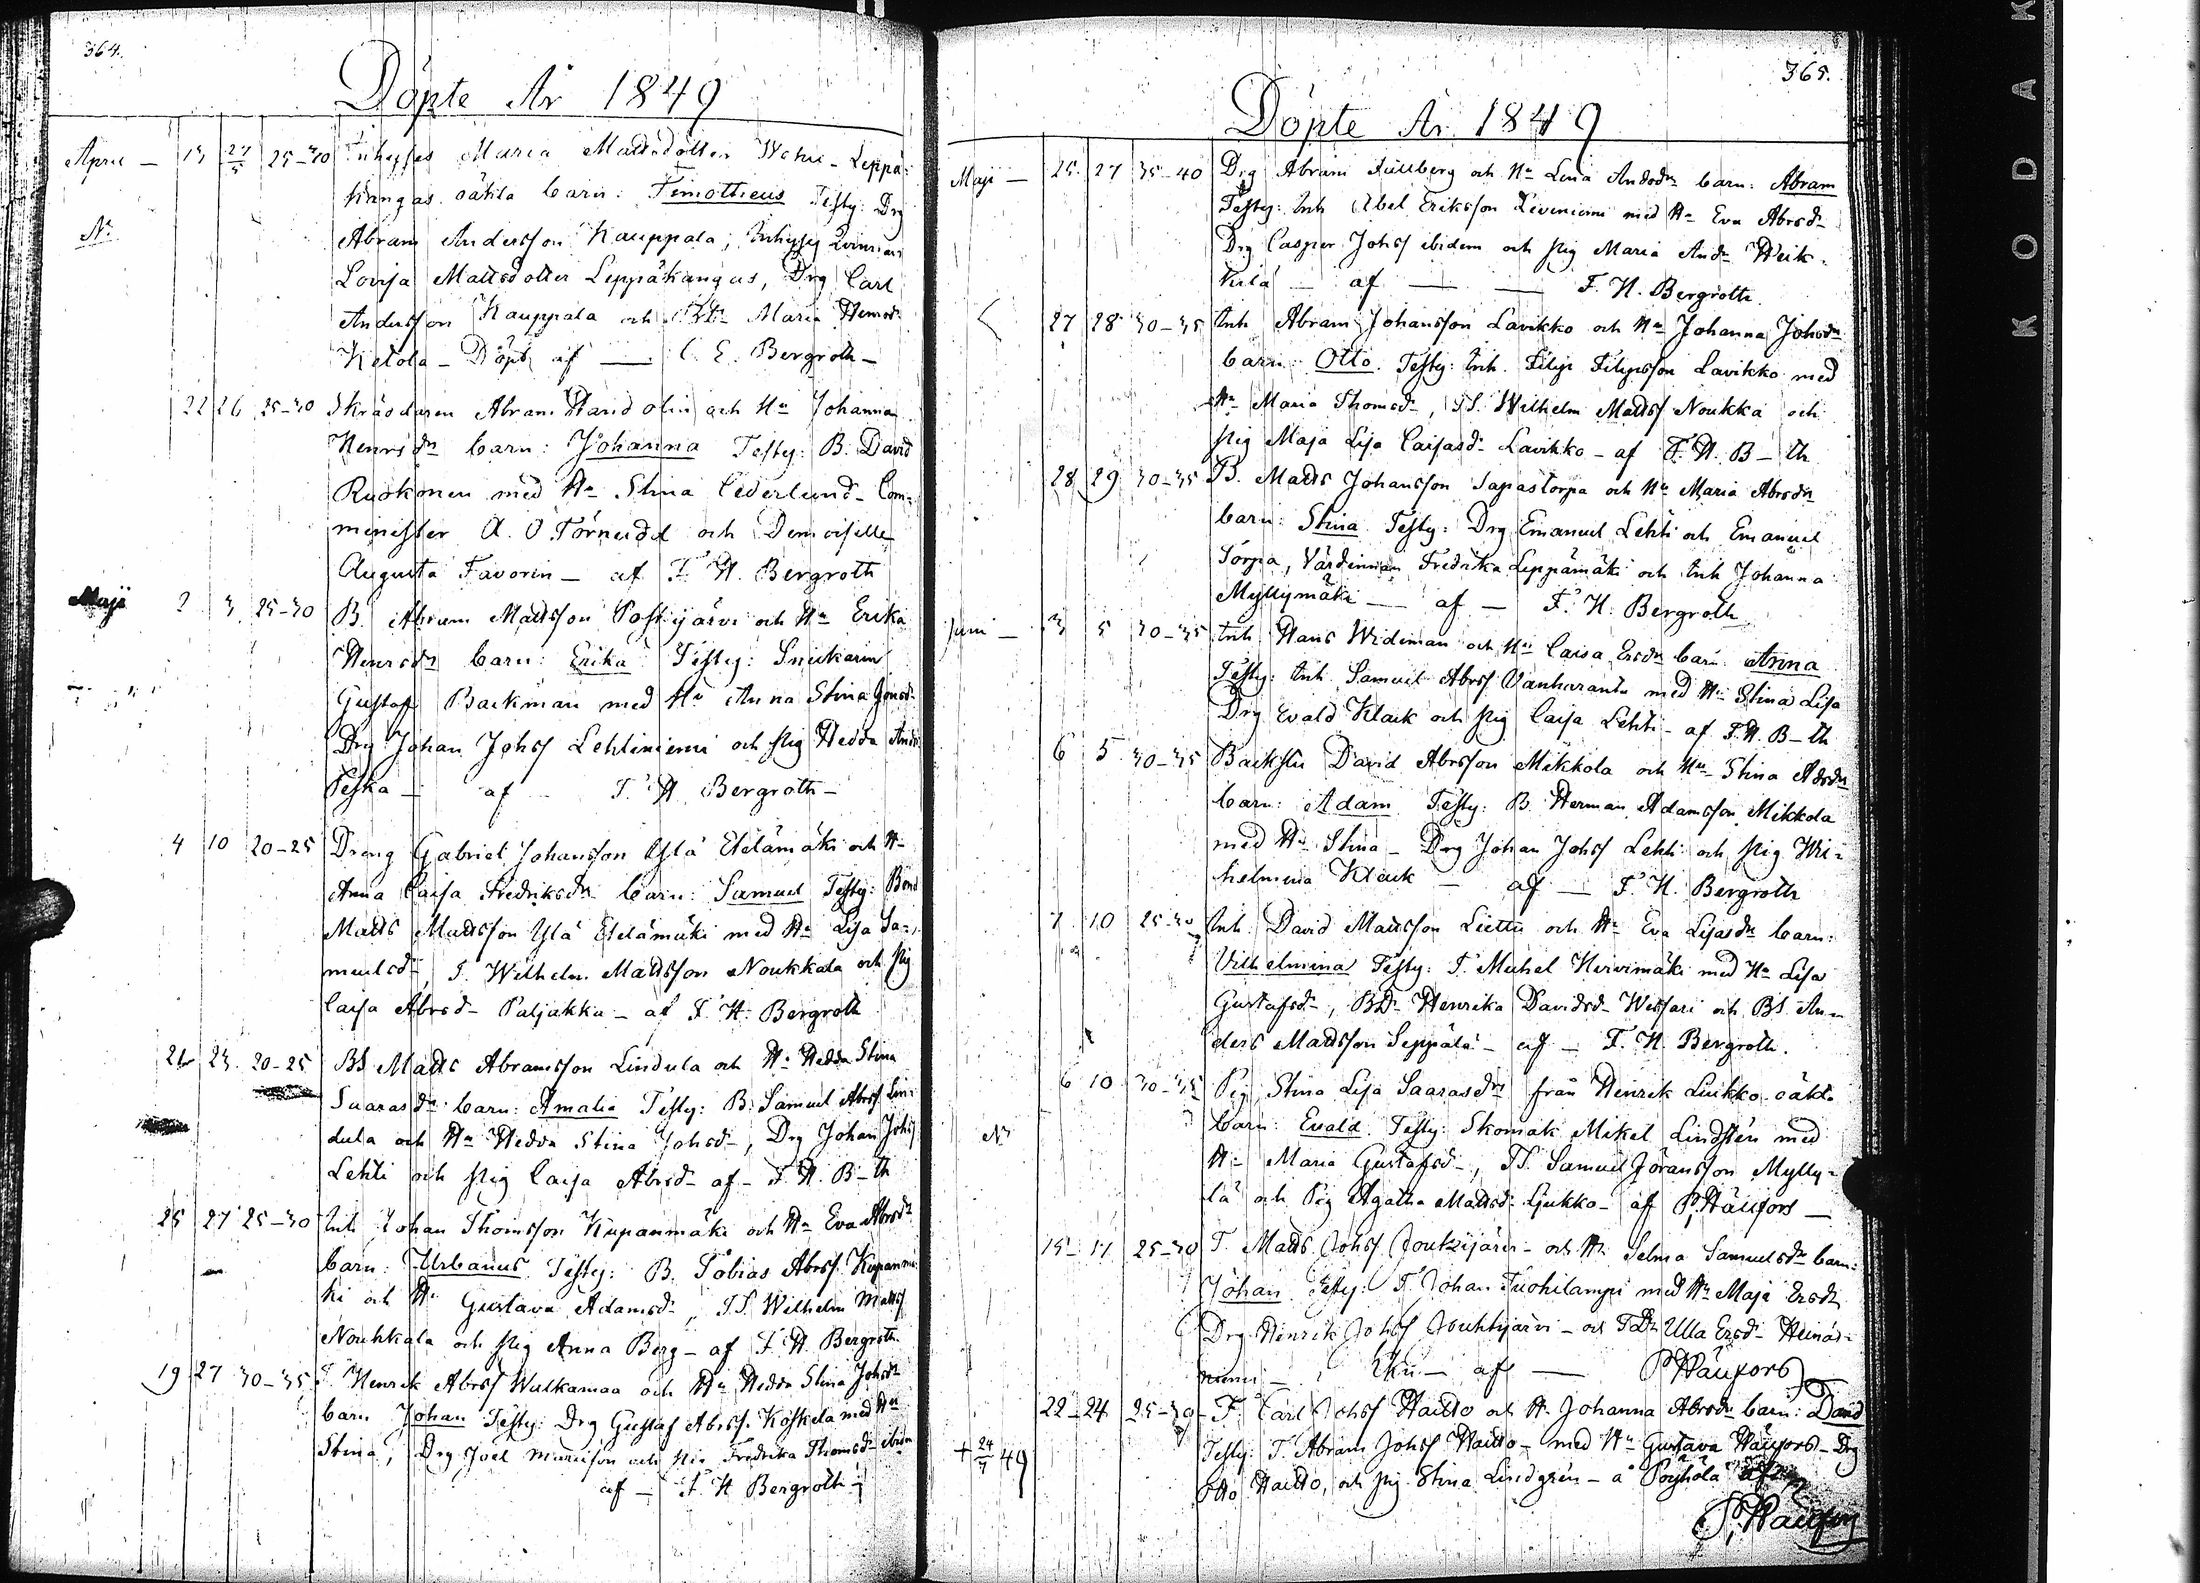 364.
Döpte År 1849
April — 13 27/5 25-30 Inhyses Maria Mattsdotter Leppä-
kangas oäkta barn: Timotheus Testg: Drg
Nr Abram Andersson Kauppala, Inhyses Qvinnan
Lovisa Mattsdotter Leppäkangas, Drg Carl
Andersson Kauppala och Maria Henrsdr
Ketola — Döpt af — C. E. Bergroth —
22 26 25-30 Skräddaren Abram David Olin och Hu Johanna
Henrsdr barn: Johanna Testg: B. David
Ruokonen med Hu Stina Cederlund — Com-
minister A. O Törnudd och Demoiselle
Augusta Favorin — af F. H. Bergroth
Maji 2 3 25-30 B. Abram Mattsson Postijärvi och Hu Erika
Henrsdr barn: Erika Testg: Snickaren
Gustaf Backman med Hu Anna Stina Jonsdr
Drg Johan Johss Lehtiniemi och Pig Hedda Andr
Peska — af — F. H. Bergroth —
4 10 20-25 Dreng Gabriel Johansson Ylä Etelämäki och Hu
Anna Caisa Fredriksdr barn: Samuel Testg: Bond
Matts Mattsson Ylä Etelämäki med Hu Lisa Sa-
muelsdr, T. Wilhelm Mattsson Noukkala och Pig
Caisa Abrsd — Paljakka — af F. H. Bergroth
21 23 20-25 BS Matts Abramsson Lindula och Hu Hedda Stina
Saarasdr barn: Amalia Testg: B. Samuel Abrss Lin-
dula och Hu Hedda Stina Johsd —, Drg Johan Johss
Lehti och Pig Caisa Abrsd — af — F. H. B—th
25 27 25-30 Inh Johan Thomsson Kupanmäki och Hu Eva Abrsdr
barn: Urbanus Testg: B. Tobias Abrss Kupanmä-
ki och Hu Gustava Adamsd —, TS Wilhelm Matts
Noukkala och Pig Anna Berg — af F. H. Bergroth
19 27 30-35 T. Henrik Abrss Wulkamaa och Hu Hedda Stina Johsdr
barn Johan Testg: Drg Gustaf Abrss Koskela med Hu
Stina, Drg Joel och Pig Fredrika Thomsd ibidm
af — F. H Bergroth —
365.
Döpte År 1849
Maji — 25 27 35-40 Drg Abram Fullberg och Hu Lena Andsdr barn: Abram
Testg: Inh Abel Eriksson Liviniemi med Hu Eva Abrsdr
Drg Casper Johss ibidem och Pig Maria Andr Heik-
kilä — af — F. H. Bergroth.
27 28 30-35 Inh Abram Johansson Lavikko och Hu Johanna Johsdr
barn: Otto. Testg: Inh. Filip Filipsson Lavikko med
Hu Maria Thomsdr, TS. Wilhelm Matts Noukka och
Pig Maja Lisa Caisasd — Lavikko — af F. H. B—th
28 29 30-35 B. Matts Johansson Sapastorpa och Hu Maria Abrsdr
barn: Stina Testg: Drg Emanuel Lehti och Emanuel
Torpa, Värdinnan Fredrika Leppämäki och Inh Johanna
Myllymäki — af — F. H. Bergroth
Juni — 3 5 30-35 Inh Hans Wideman och Hu Caisa Ersdr barn: Anna
Testg: Inh Samuel Abrss Vanharanta med Hu Stina Lisa
Drg Evald Klack och Pig Caisa Lehti — af F. H. B—th
6 5 30-35 Backstu David Abrsson Mikkola och Hu Stina Adsdr
barn: Adam Testg: B Herman Adamsson Mikkola
med Hu Stina — Drg Johan Johss Lehti och Pig Wil-
helmina Klack — af — F. H. Bergroth
7 10 25-30 Inh. David Mattsson Liettu och Hu Eva Lisasdr barn:
Vilhelmina Testg: T. Michel Hirvimäki med Hu Lisa
Gustafsd —, BDr Henrika Davidsd — Wessari och BS An-
ders Mattsson Seppälä — af — F. H. Bergroth.
6 10 30-35 Pig Stina Lisa Saarasdr från Henrik Luikko oäkta
Nr barn: Evald. Testg: Skomak Mikel Lindstén med
Hu Maria Gustafsd —, TS. Samuel Göransson Mylly-
lä och Pig Agatha Mattsd Ljukko — af P. Häufors —
15 17 25-30 T. Matts Johss Joukijärvi — och Hu Selma Samuelsdr barn:
Johan Testg: T. Johan Tuohilampi med Hu Maja Ersdr
Drg Henrik Johss Jouhtijärvi — och TDr Ulla Ersd — Heinä-
niemi — af — P. Häufors
22 24 25-30 T. Carl Johss Haitto och Hu Johanna Abrsdr barn: David
+ 24/7 49 Testg: T. Abram Johss Haitto — med Hu Gustava Häufors — Drg
Otto Haitto, och Pig Stina Lindgrén — å Pohjola af
P. Häufors
KODAK